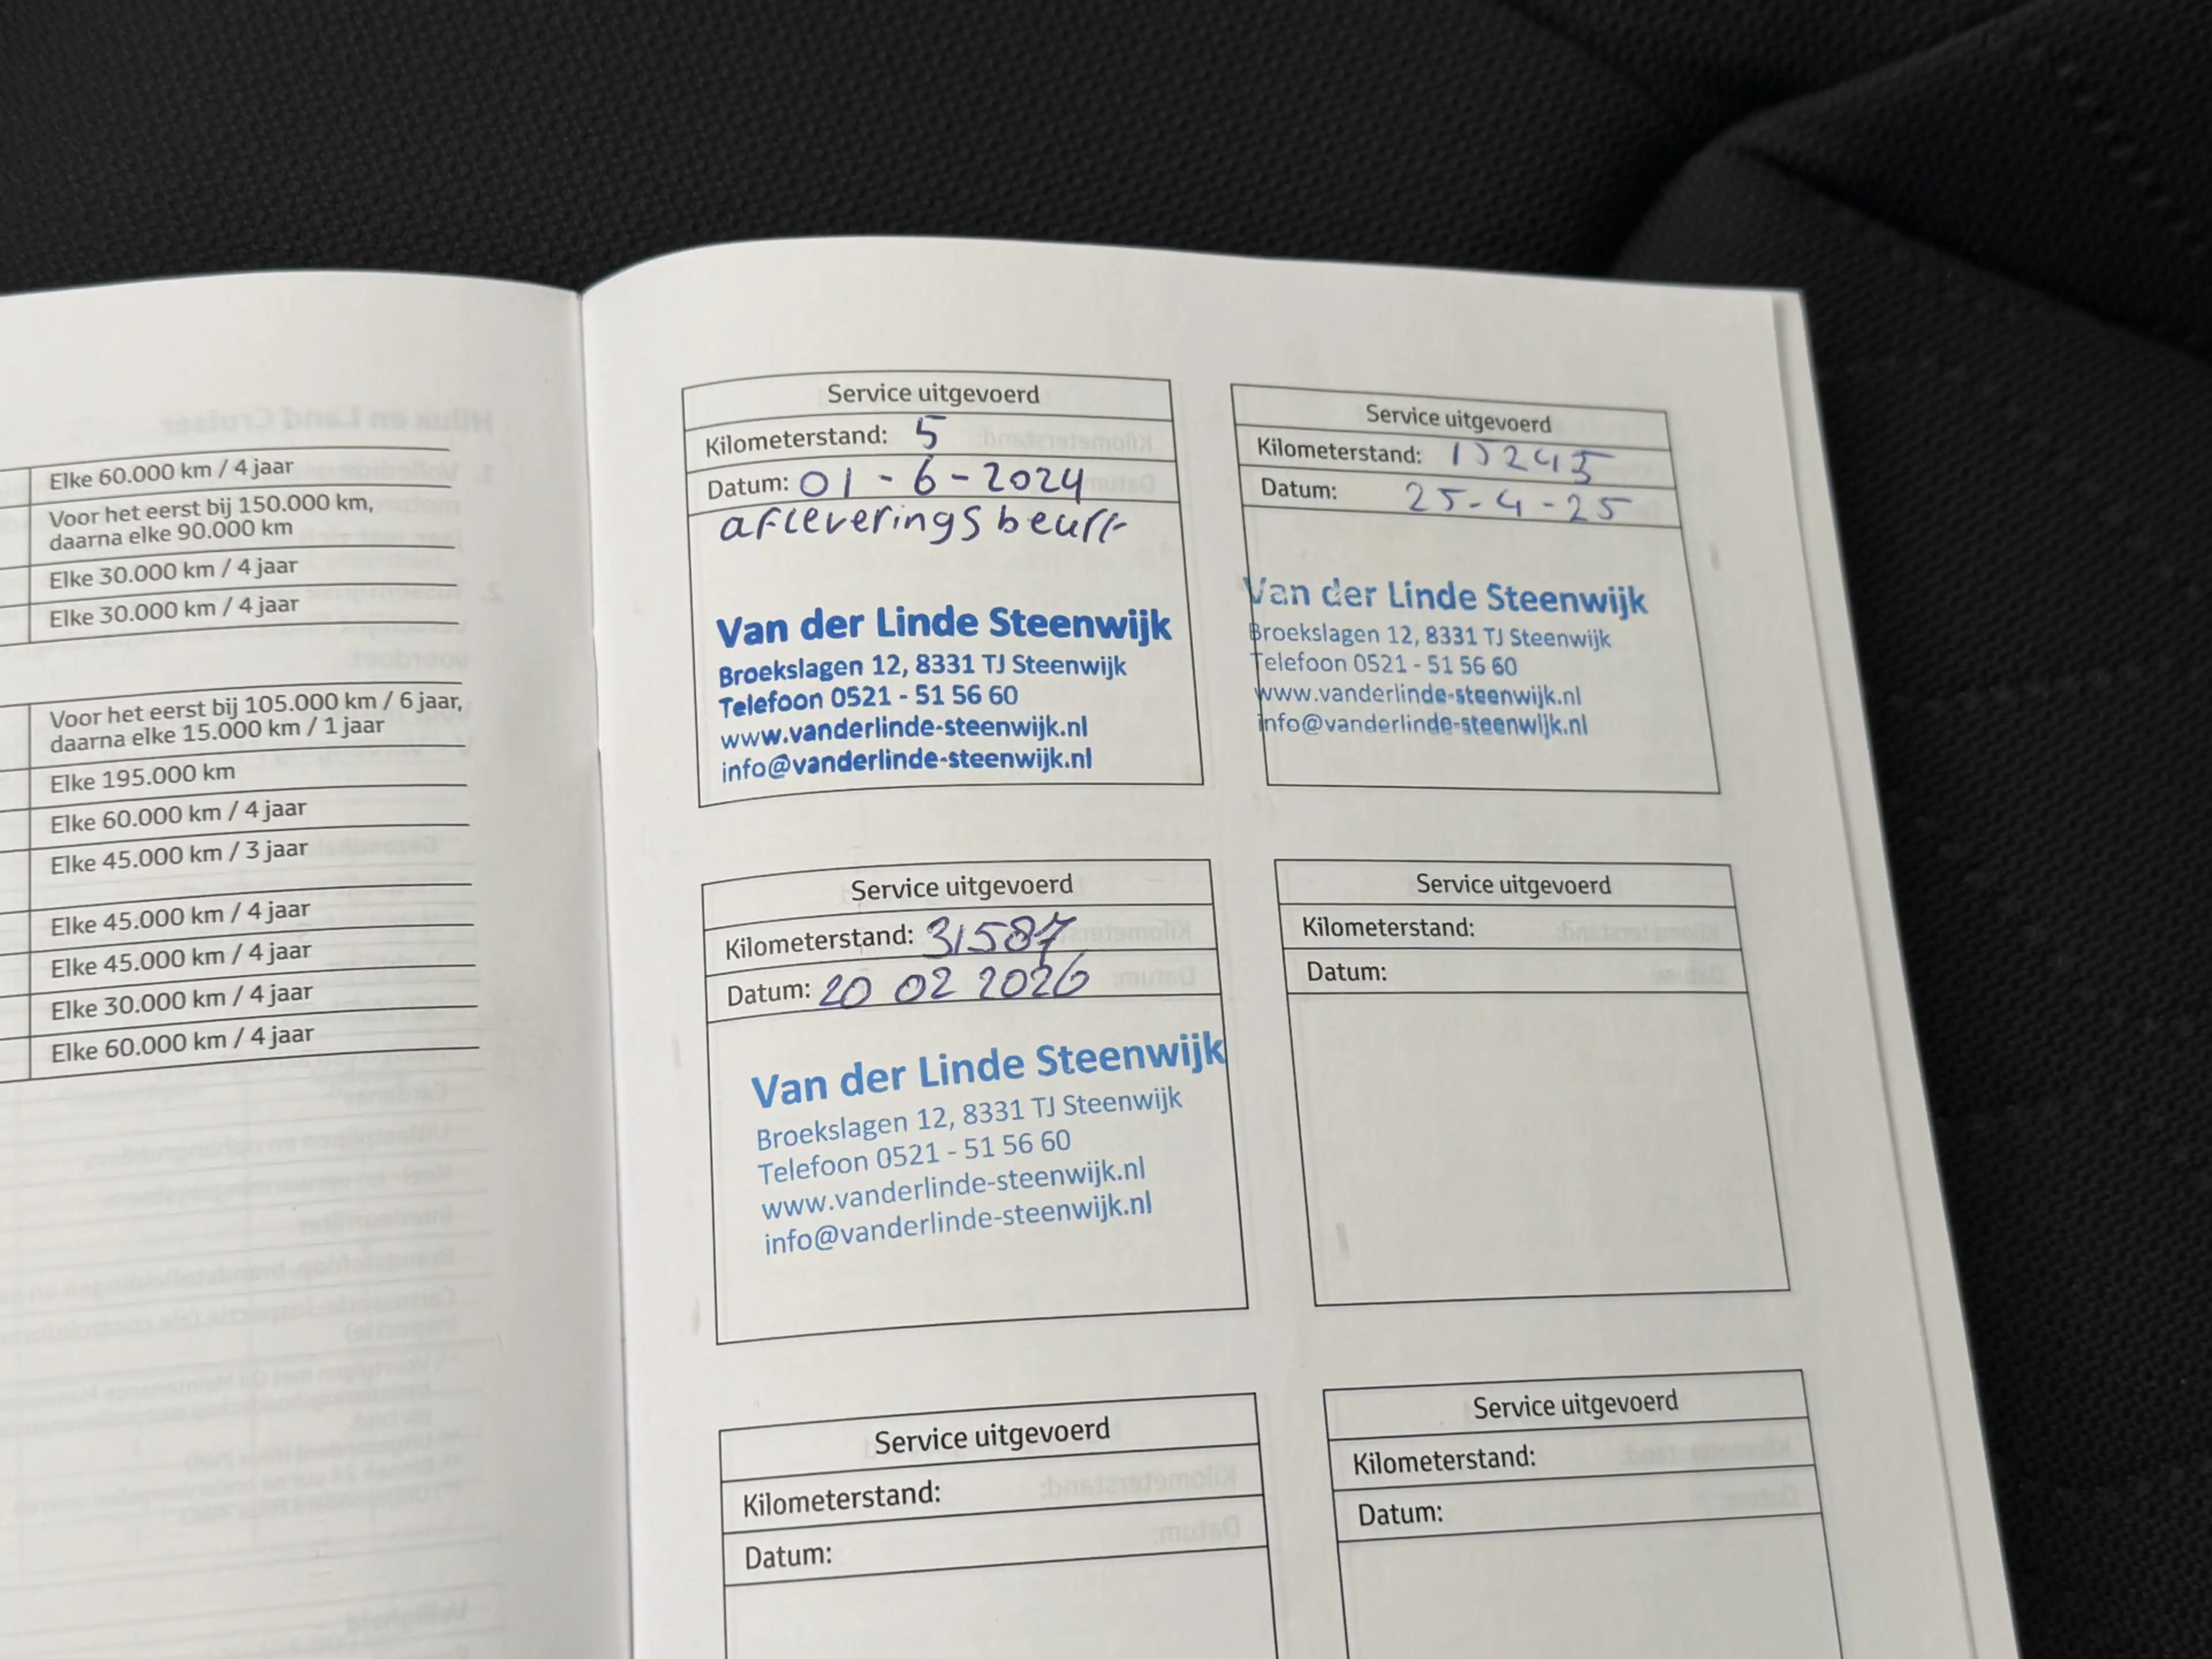 Elke 60.000 km / 4 jaar
Voor het eerst bij 150.000 km,
daarna elke 90.000 km
Elke 30.000 km / 4 jaar
Elke 30.000 km / 4 jaar
Voor het eerst bij 105.000 km / 6 jaar,
daarna elke 15.000 km / 1 jaar
Elke 195.000 km
Elke 60.000 km / 4 jaar
Elke 45.000 km / 3 jaar
Elke 45.000 km / 4 jaar
Elke 45.000 km / 4 jaar
Elke 30.000 km / 4 jaar
Elke 60.000 km / 4 jaar
Service uitgevoerd
Kilometerstand: 5
Datum: 01 - 6 - 2024
afleveringsbeurt
Van der Linde Steenwijk
Broekslagen 12, 8331 TJ Steenwijk
Telefoon 0521 - 51 56 60
www.vanderlinde-steenwijk.nl
info@vanderlinde-steenwijk.nl
Service uitgevoerd
Kilometerstand: 15245
Datum: 25-4-25
Van der Linde Steenwijk
Broekslagen 12, 8331 TJ Steenwijk
Telefoon 0521 - 51 56 60
www.vanderlinde-steenwijk.nl
info@vanderlinde-steenwijk.nl
Service uitgevoerd
Kilometerstand: 31587
Datum: 20 02 2026
Van der Linde Steenwijk
Broekslagen 12, 8331 TJ Steenwijk
Telefoon 0521 - 51 56 60
www.vanderlinde-steenwijk.nl
info@vanderlinde-steenwijk.nl
Service uitgevoerd
Kilometerstand:
Datum:
Service uitgevoerd
Kilometerstand:
Datum:
Service uitgevoerd
Kilometerstand:
Datum: